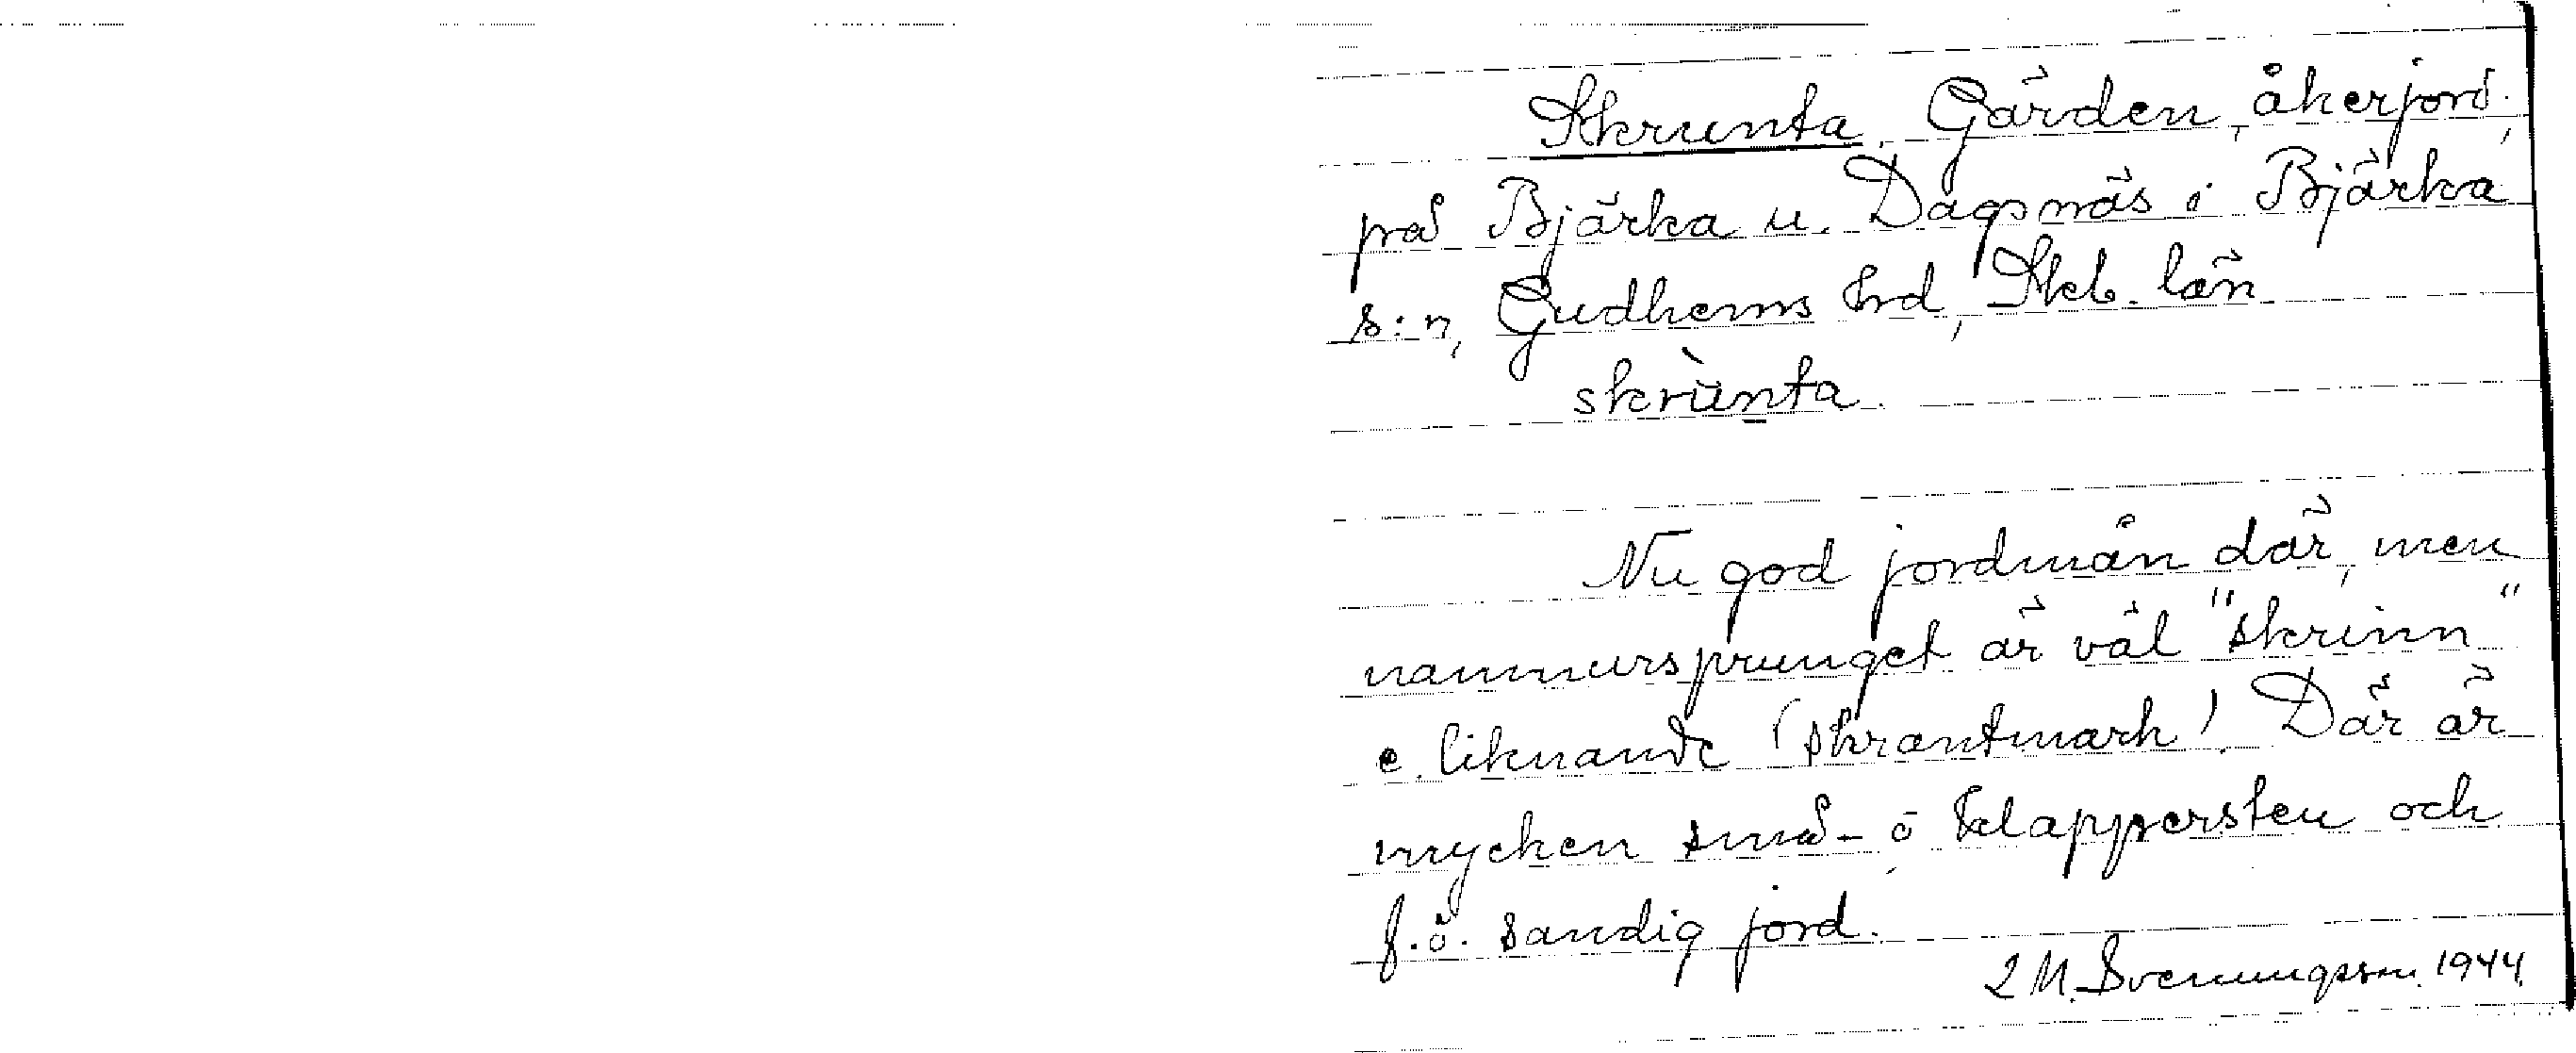 Skrunta, Gärden, åkerjord,
på Bjärka u. Dagsnäs i Bjärka
s:n, Gudhems hrd, Skb. län
skrùnta.
Nu god jordmån där, men
namnursprunget är väl "skrinn"
e. liknande (skrantmark). Där är
mycken små- o klappersten och
f.ö. sandig jord.
L M. Svenungsson. 1944.